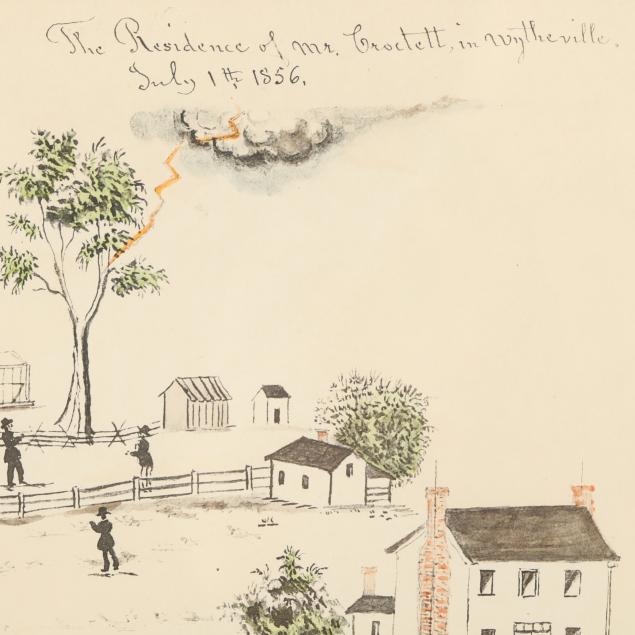 The Residence of Mr. Crockett, in Wytheville.
July 1th, 1856.